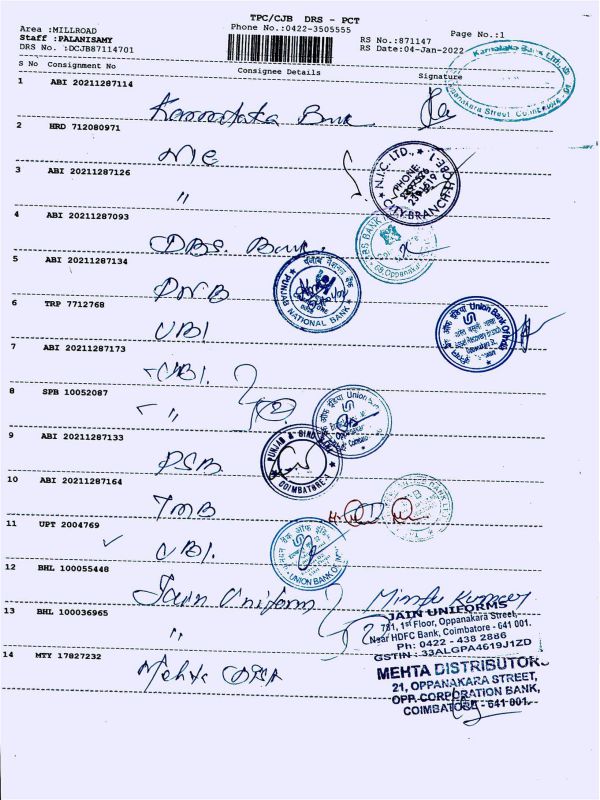 TPC/CJB DRS - PCT
Area :MILLROAD
Phone No.:0422-3505555
Staff :PALANISAMY
RS No.:871147
Page No.:1
DRS No. :DCJB87114701
RS Date:04-Jan-2022
S No Consignment No Consignee Details Signature
Karnataka Bank Ltd.,
Oppanakara Street, Coimbatore - 01
1 ABI 20211287114
Karnataka Bank
2 HRD 712080971
NIC
N.I.C. LTD.,
PHONE:
CITY BRANCH
3 ABI 20211287126
"
4 ABI 20211287093
DBS Bank
5 ABI 20211287134
PNB
पंजाब नैशनल बैंक
PUNJAB NATIONAL BANK
6 TRP 7712768
UBI
Union Bank Of India
7 ABI 20211287173
UBI.
8 SPB 10052087
"
Union Bank
9 ABI 20211287133
PSB
PUNJAB & SIND BANK
COIMBATORE-1
10 ABI 20211287164
TMB
11 UPT 2004769
UBI.
यूनियन बैंक ऑफ इंडिया
UNION BANK OF
12 BHL 100055448
Jain Uniform
JAIN UNIFORMS
781, 1st Floor, Oppanakara Street,
Near HDFC Bank, Coimbatore - 641 001.
Ph: 0422 - 438 2886
GSTIN : 33ALGPA4619J1ZD
13 BHL 100036965
"
14 MTY 17827232
Mehta
MEHTA DISTRIBUTORS
21, OPPANAKARA STREET,
OPP. CORPORATION BANK,
COIMBATORE - 641 001.